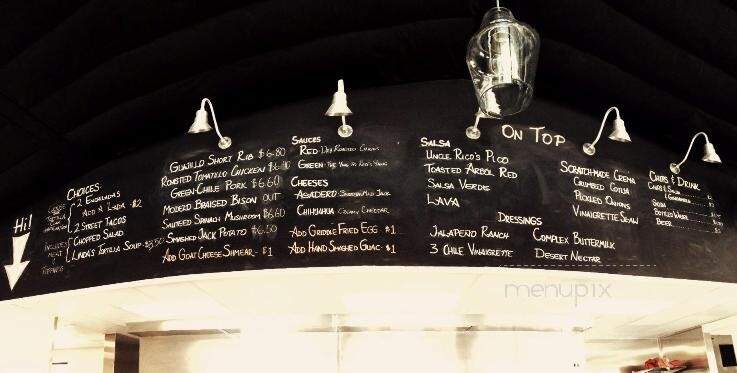 Hi!
CHOICES
2 ENGALADAS
ADD A LADA - $2
2 STREET TACOS
CHOPPED SALAD
LINDA'S TORTILLA SOUP - $3.50
INCLUDES
MEAT
GUAJILLO SHORT RIB $6.80
ROASTED TOMATILLO CHICKEN
GREEN CHILE PORK $6.60
MODELO BRAISED BISON OUT
SAUTEED SPINACH MUSHROOM $6.60
SMASHED JACK POTATO $6.50
ADD GOAT CHEESE SHMEAR - $1
SAUCES
RED - DRY ROASTED CHILIES
GREEN
CHEESES
ASADERO
CHIHUAHUA CREAMY CHEDDAR
ADD GRIDDLE FRIED EGG - $1
ADD HAND SMASHED GUAC - $1
SALSA
UNCLE RICO'S PICO
TOASTED ARBOL RED
SALSA VERDE
LAVA
ON TOP
SCRATCHMADE CREMA
CRUMBLED COTIJA
PICKLED ONIONS
VINAIGRETTE SLAW
DRESSINGS
JALAPEÑO RANCH
3 CHILE VINAIGRETTE
COMPLEX BUTTERMILK
DESERT NECTAR
CHIPS & DRINK
CHIPS & SALSA
SODA
BOTTLED WATER
BEER
menupix